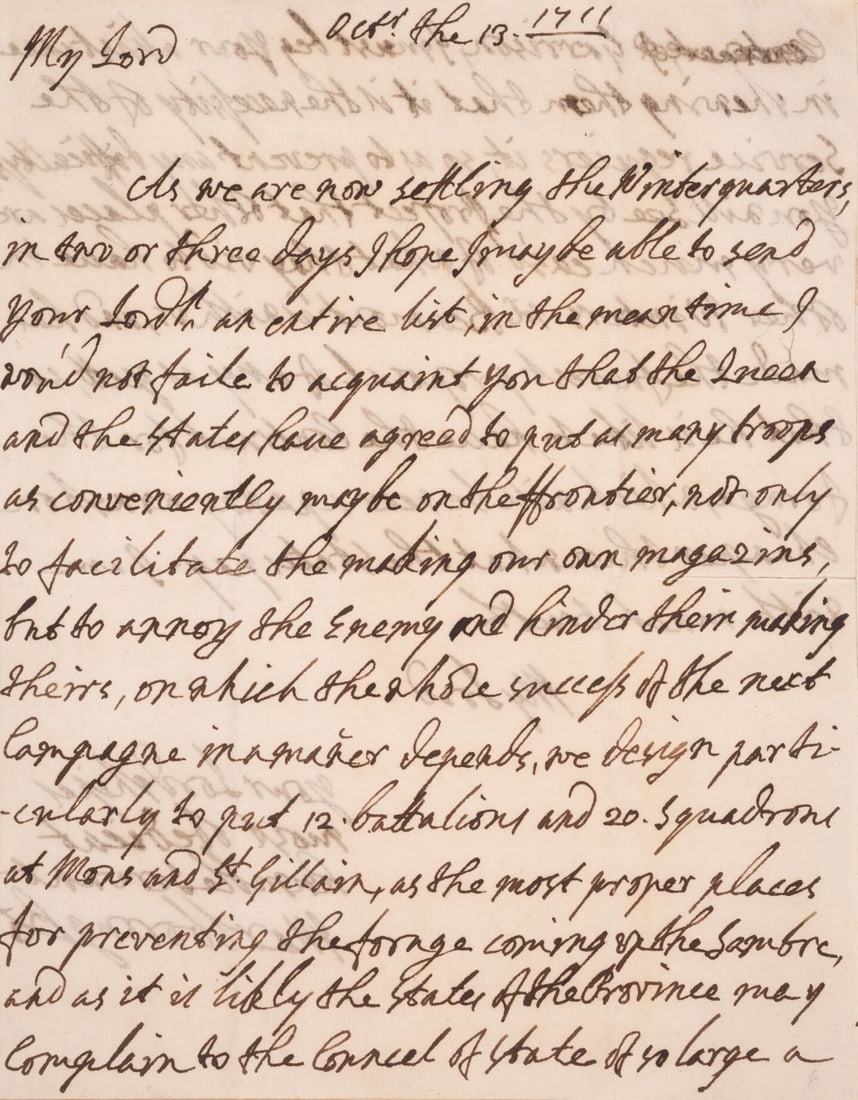 Octr. the 13. 1711
My Lord
As we are now settling the Winterquarters,
in two or three days I hope I may be able to send
your Lordh. an entire list, in the mean time I
wou'd not faile to acquaint you that the Queen
and the States have agreed to put as many troops
as conveniently may be on the ffrontier, not only
to facilitate the making our own magazins,
but to annoy the Enemy and hinder their making
theirs, on which the whole success of the next
Campagne in a mañer depends, we design parti-
-cularly to put 12. battalions and 20. Squadrons
at Mons and St. Gillain, as the most proper places
for preventing the forage coming up the Sambre,
and as it is likly the States of the Province may
Complain to the Councel of State of so large a